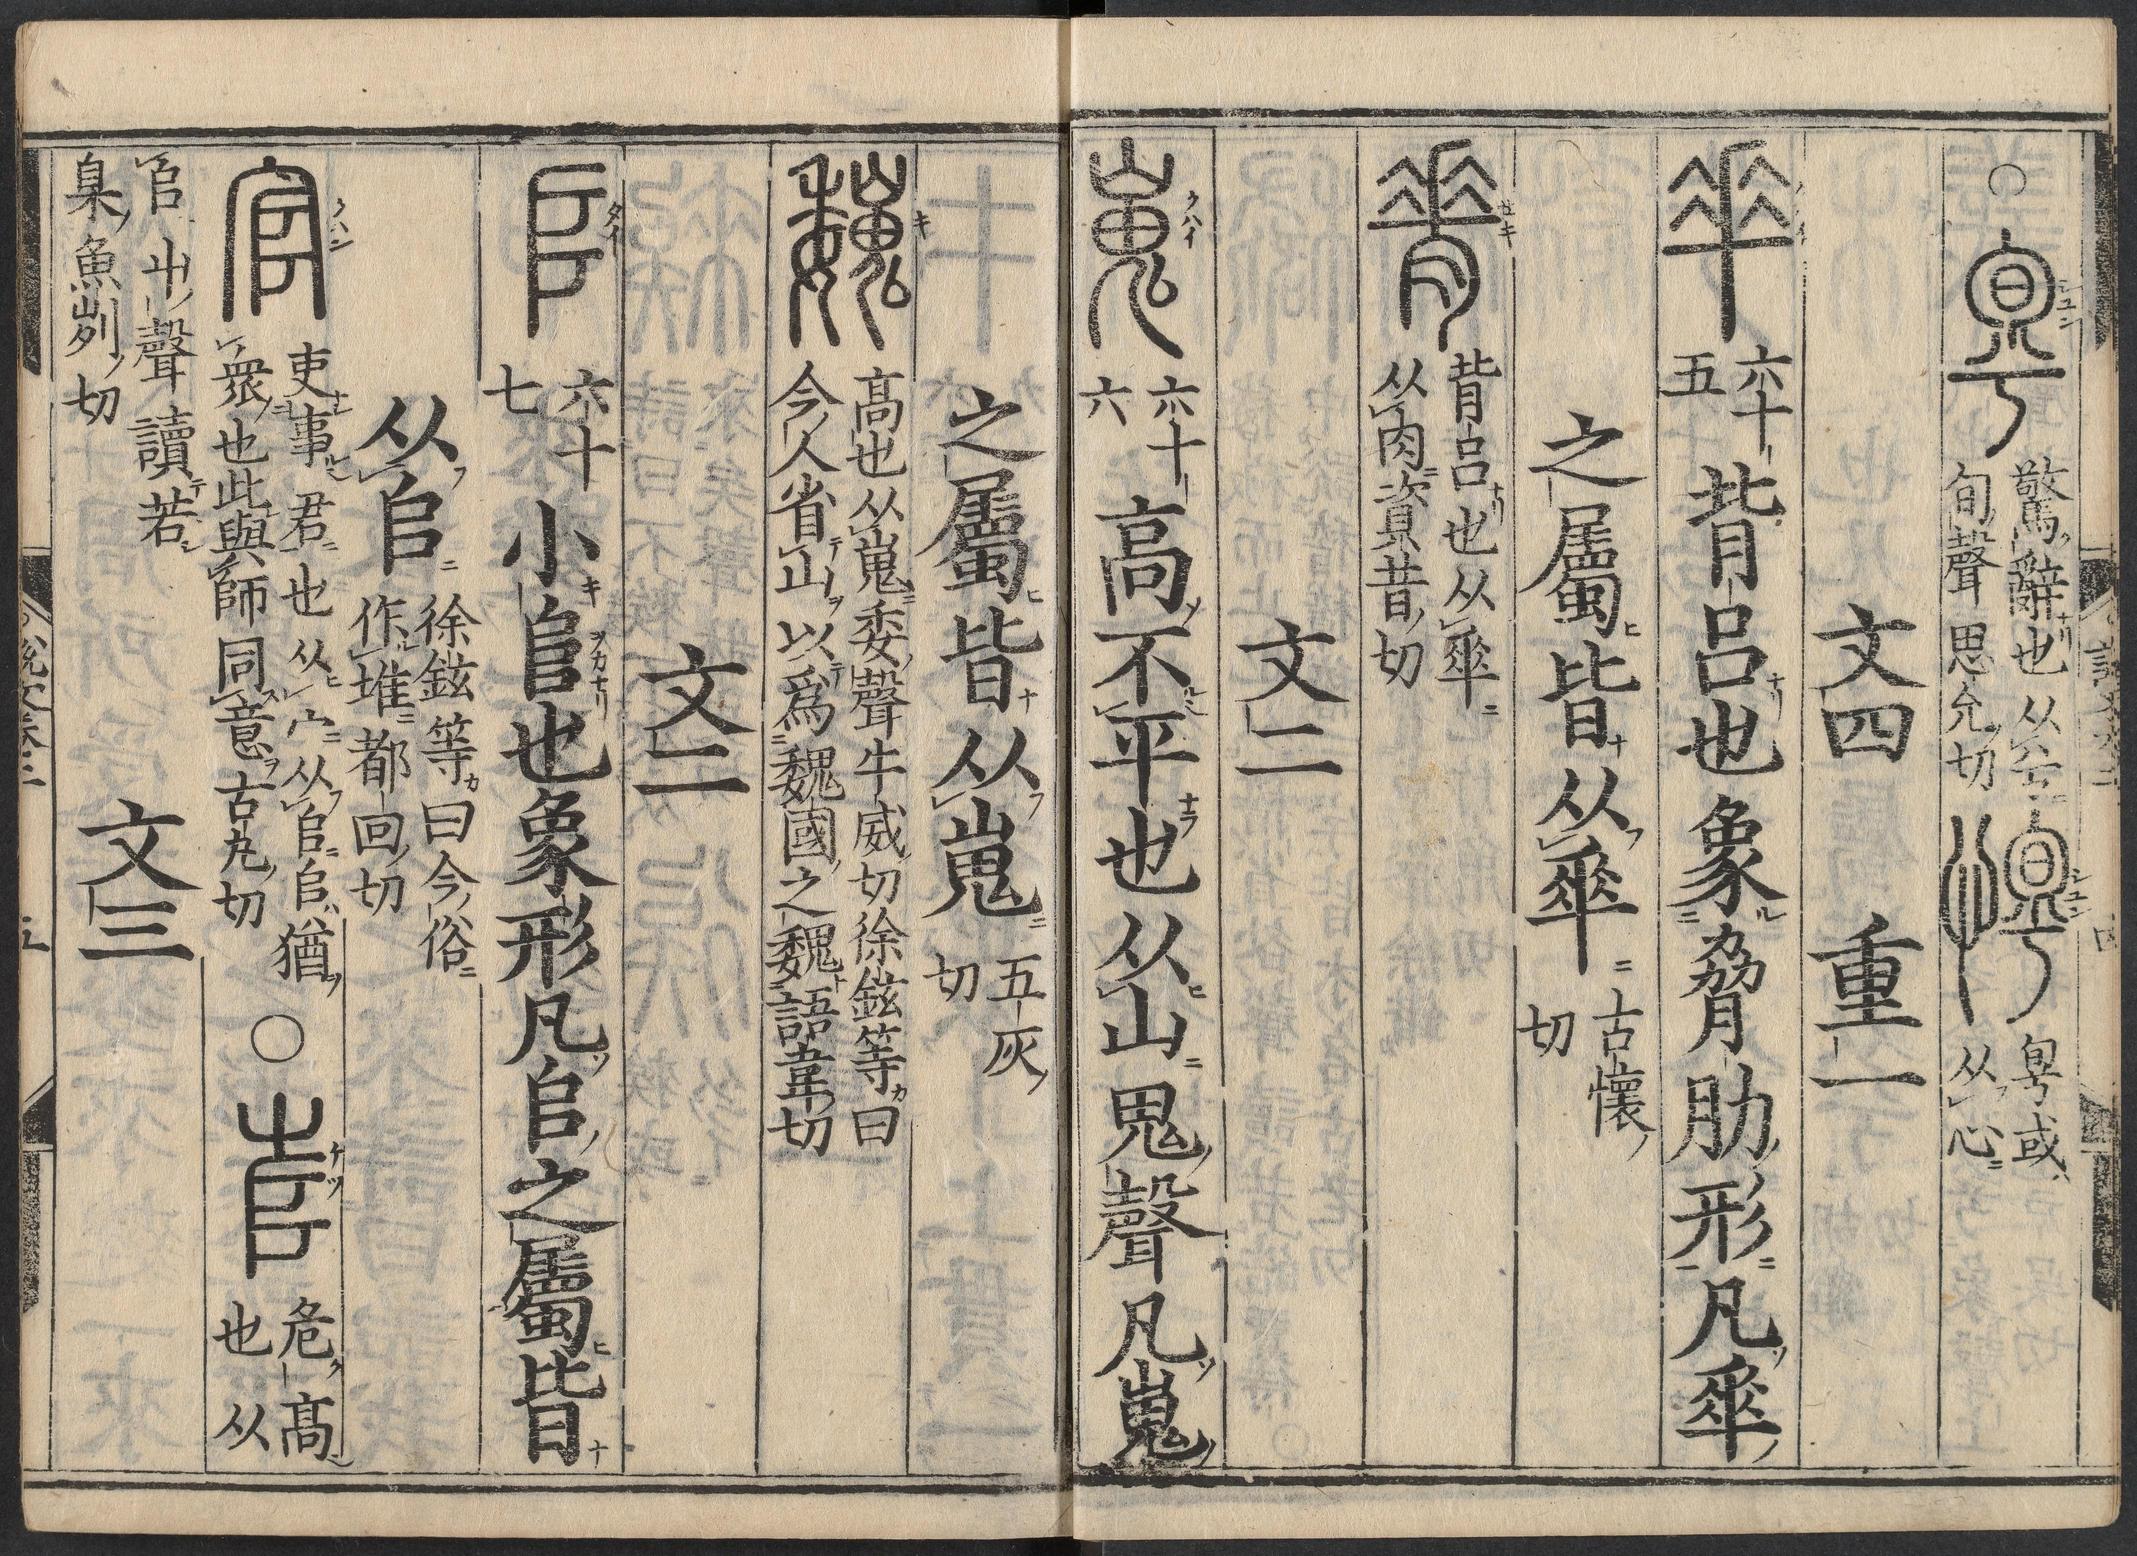 ○ 驚辭也从兮旬聲思允切 㝁或从心
文四 重一
六十五 背呂也象脅肋形凡𠦬
之屬皆从𠦬 古懷切
背呂也从𠦬从肉資昔切
文二
六十六 高不平也从山鬼聲凡嵬
之屬皆从嵬 五灰切
高也从嵬委聲牛威切徐鉉等曰今人省山以爲魏國之魏語韋切
文二
六十七 小𨸏也象形凡𠂤之屬皆
从𠂤 徐鉉等曰今俗作堆都回切
吏事君也从宀从𠂤𠂤猶衆也此與師同意古丸切 ○ 危高也从
𠂤屮聲讀若臬魚列切 文三